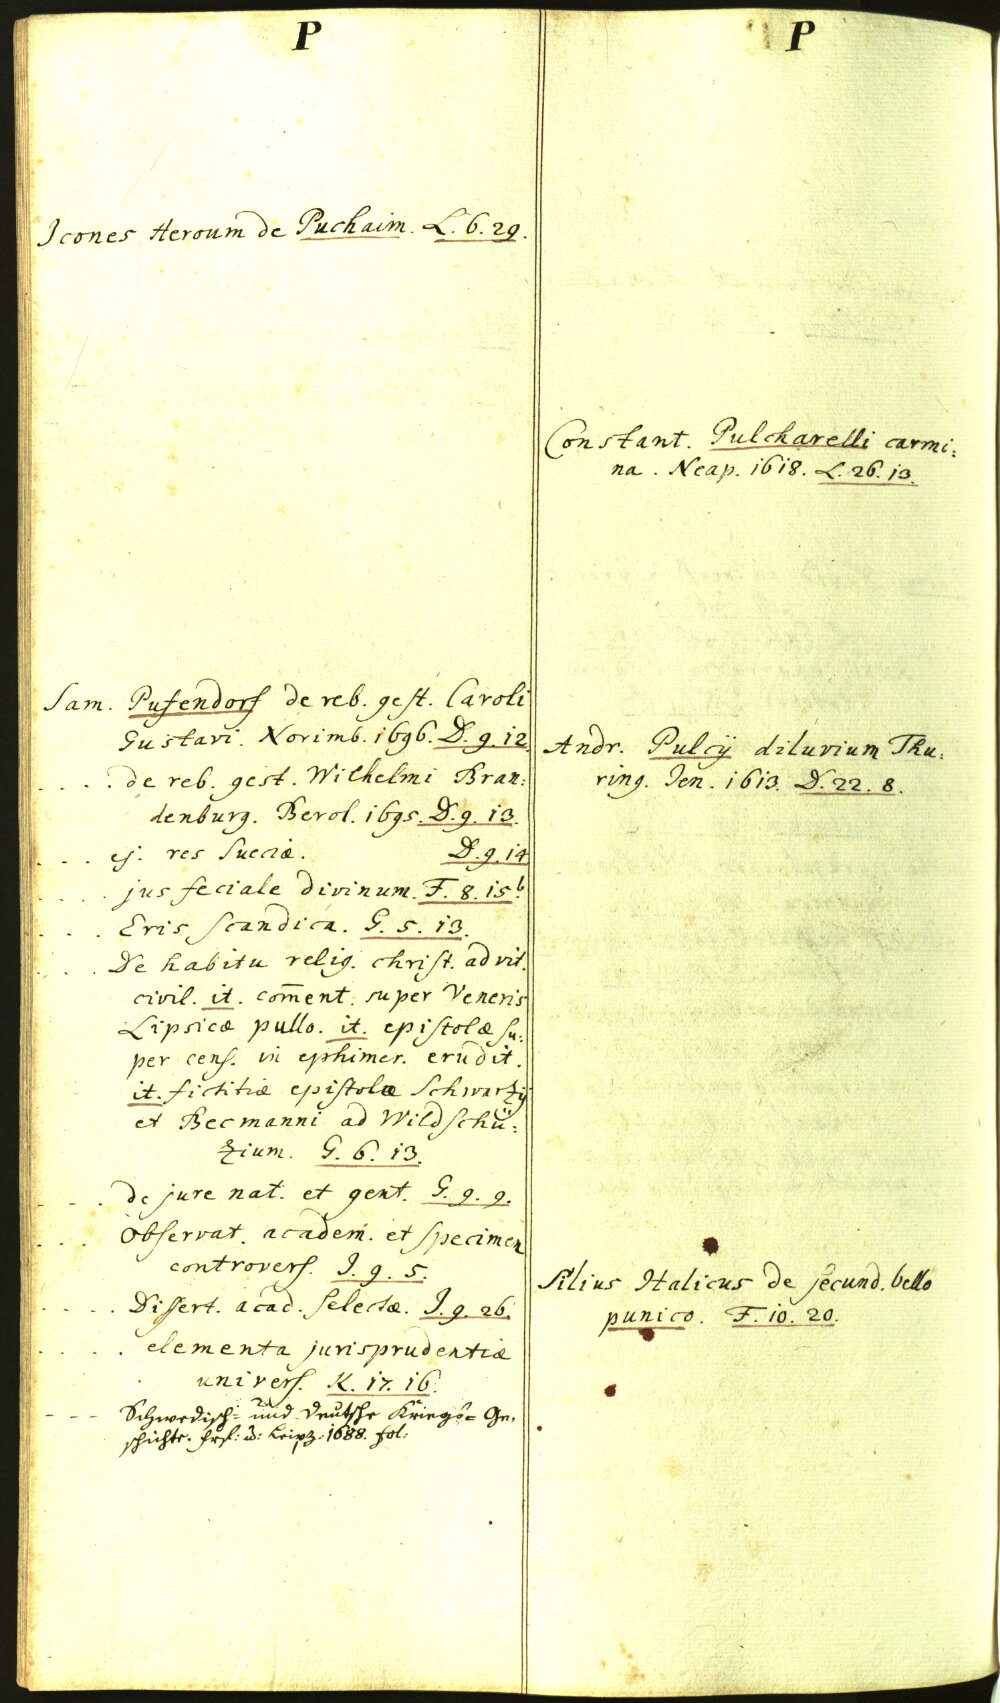 P
Icones Heroum de Puchaim. L. 6. 29.
Sam. Pufendorf de reb. gest. Caroli
Gustavi. Norimb. 1696. D. 9. 12
. . . . de reb. gest. Wilhelmi Bran:
denburg. Berol. 1695. D. 9. 13.
. . . ej. res Sueciæ. D. 9. 14
. . . . jus feciale divinum. F. 8. 15b.
. . . Eris Scandica. G. 5. 13.
. . . . De habitu relig. christ. ad vit.
civil. it. com̄ent. super Veneris
Lipsicæ pullo. it. epistolæ su:
per cens. in ephimer. erudit.
it. fictitiæ epistolæ Schwartzij
et Becmanni ad Wildschü:
tzium. G. 6. 13.
. . . de jure nat. et gent. G. 9. 9.
. . . Observat. academ. et specimen
controvers. J. 9. 5.
. . . . Dissert. acad. selectæ. J. 9. 26.
. . . . . elementa jurisprudentiæ
univers. K. 17. 16.
- - - Schwedisch- und Deutsche Kriegs- Ge-
schichte. Frf: u: Leipz. 1688. fol:
P
Constant. Pulcharelli carmi:
na. Neap. 1618. L. 26. 13.
Andr. Pulcij diluvium Thu:
ring. Jen. 1613. D. 22. 8.
Silius Italicus de secund. bello
punico. F. 10. 20.